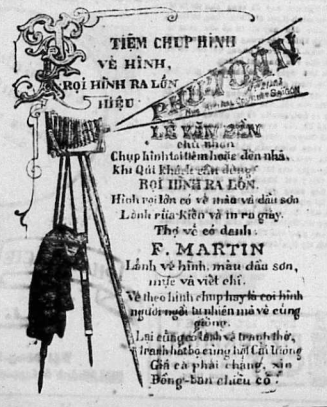 TIỆM CHỤP HÌNH
VẼ HÌNH,
RỌI HÌNH RA LỚN
HIỆU
PHU-TOAN
LÊ VĂN BỀN
chủ nhơn
Chụp hình tại tiệm hoặc đến nhà,
Khi Quí khách cần dùng
RỌI HÌNH RA LỚN.
Hình rọi lớn có vẽ màu và dầu sơn
Lãnh rửa kiến và in ra giấy.
Thợ vẽ có danh
F. MARTIN
Lãnh vẽ hình, màu dầu sơn,
mực và viết chì.
Vẽ theo hình chụp hay là coi hình
người ngồi tự nhiên mà vẽ cũng
giống.
Lại cũng có lãnh vẽ tranh thờ,
tranh hát bộ cùng hát Cải lương
Giá cả phải chăng, xin
Đồng-ban chiếu cố